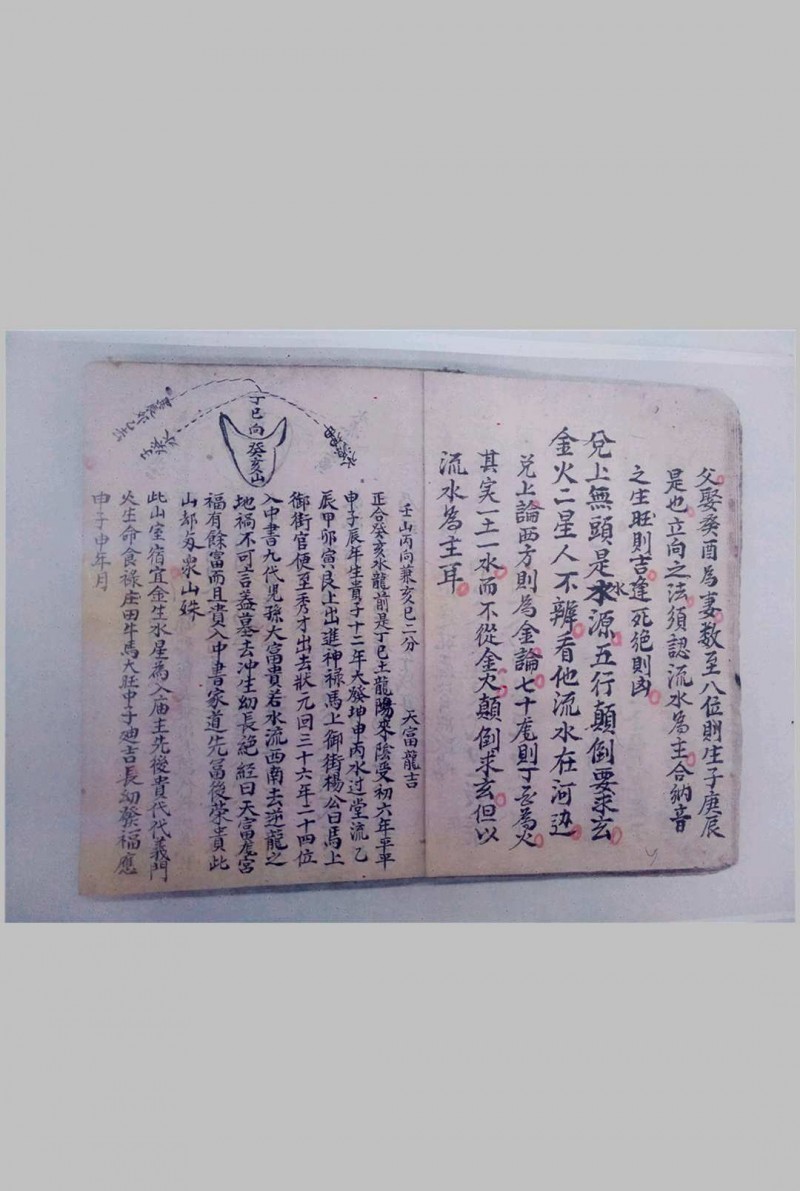 父娶癸酉為妻数至八位則生子庚辰
是也立向之法須認流水為主合納音
之生旺則吉逢死絕則凶
兌上無頭是水源五行顛倒要求玄
金火二星人不辨看他流水在河边
兌上論西方則為金論七十龙則丁巳為火
其実一土一水而不從金火顛倒求玄但以
流水為主耳
丁巳向
癸亥山
壬山丙向兼亥巳二分 天富龍吉
正合癸亥水龍前是丁巳土龍陽來陰受初六年平平
申子辰年生貴子十二年大發坤申丙水过堂流乙
辰甲卯寅艮上出進神禄馬上御街楊公曰馬上
御街官便至秀才出去狀元回三十六年二十四位
入中書九代児孫大富貴若水流西南去逆龍之
地禍不可言葢墓去沖生幼長絕經曰天富龙宮
福有餘富而且貴入中書家道先富後榮貴此
山却為衆山
此山室宿宜金生水星為入庙主先後貴代代義門
火生命食禄庄田牛馬大旺中子廸吉長幼發福應
申子申年月